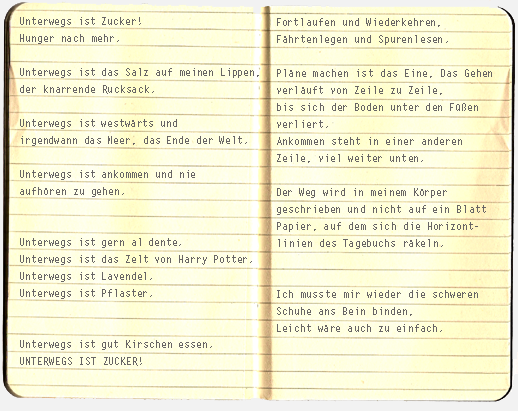 Unterwegs ist Zucker!
Hunger nach mehr.
Unterwegs ist das Salz auf meinen Lippen,
der knarrende Rucksack.
Unterwegs ist westwärts und
irgendwann das Meer, das Ende der Welt.
Unterwegs ist ankommen und nie
aufhören zu gehen.
Unterwegs ist gern al dente.
Unterwegs ist das Zelt von Harry Potter.
Unterwegs ist Lavendel.
Unterwegs ist Pflaster.
Unterwegs ist gut Kirschen essen.
UNTERWEGS IST ZUCKER!
Fortlaufen und Wiederkehren,
Fährtenlegen und Spurenlesen.
Pläne machen ist das Eine. Das Gehen
verläuft von Zeile zu Zeile,
bis sich der Boden unter den Füßen
verliert.
Ankommen steht in einer anderen
Zeile, viel weiter unten.
Der Weg wird in meinem Körper
geschrieben und nicht auf ein Blatt
Papier, auf dem sich die Horizont-
linien des Tagebuchs räkeln.
Ich musste mir wieder die schweren
Schuhe ans Bein binden.
Leicht wäre auch zu einfach.